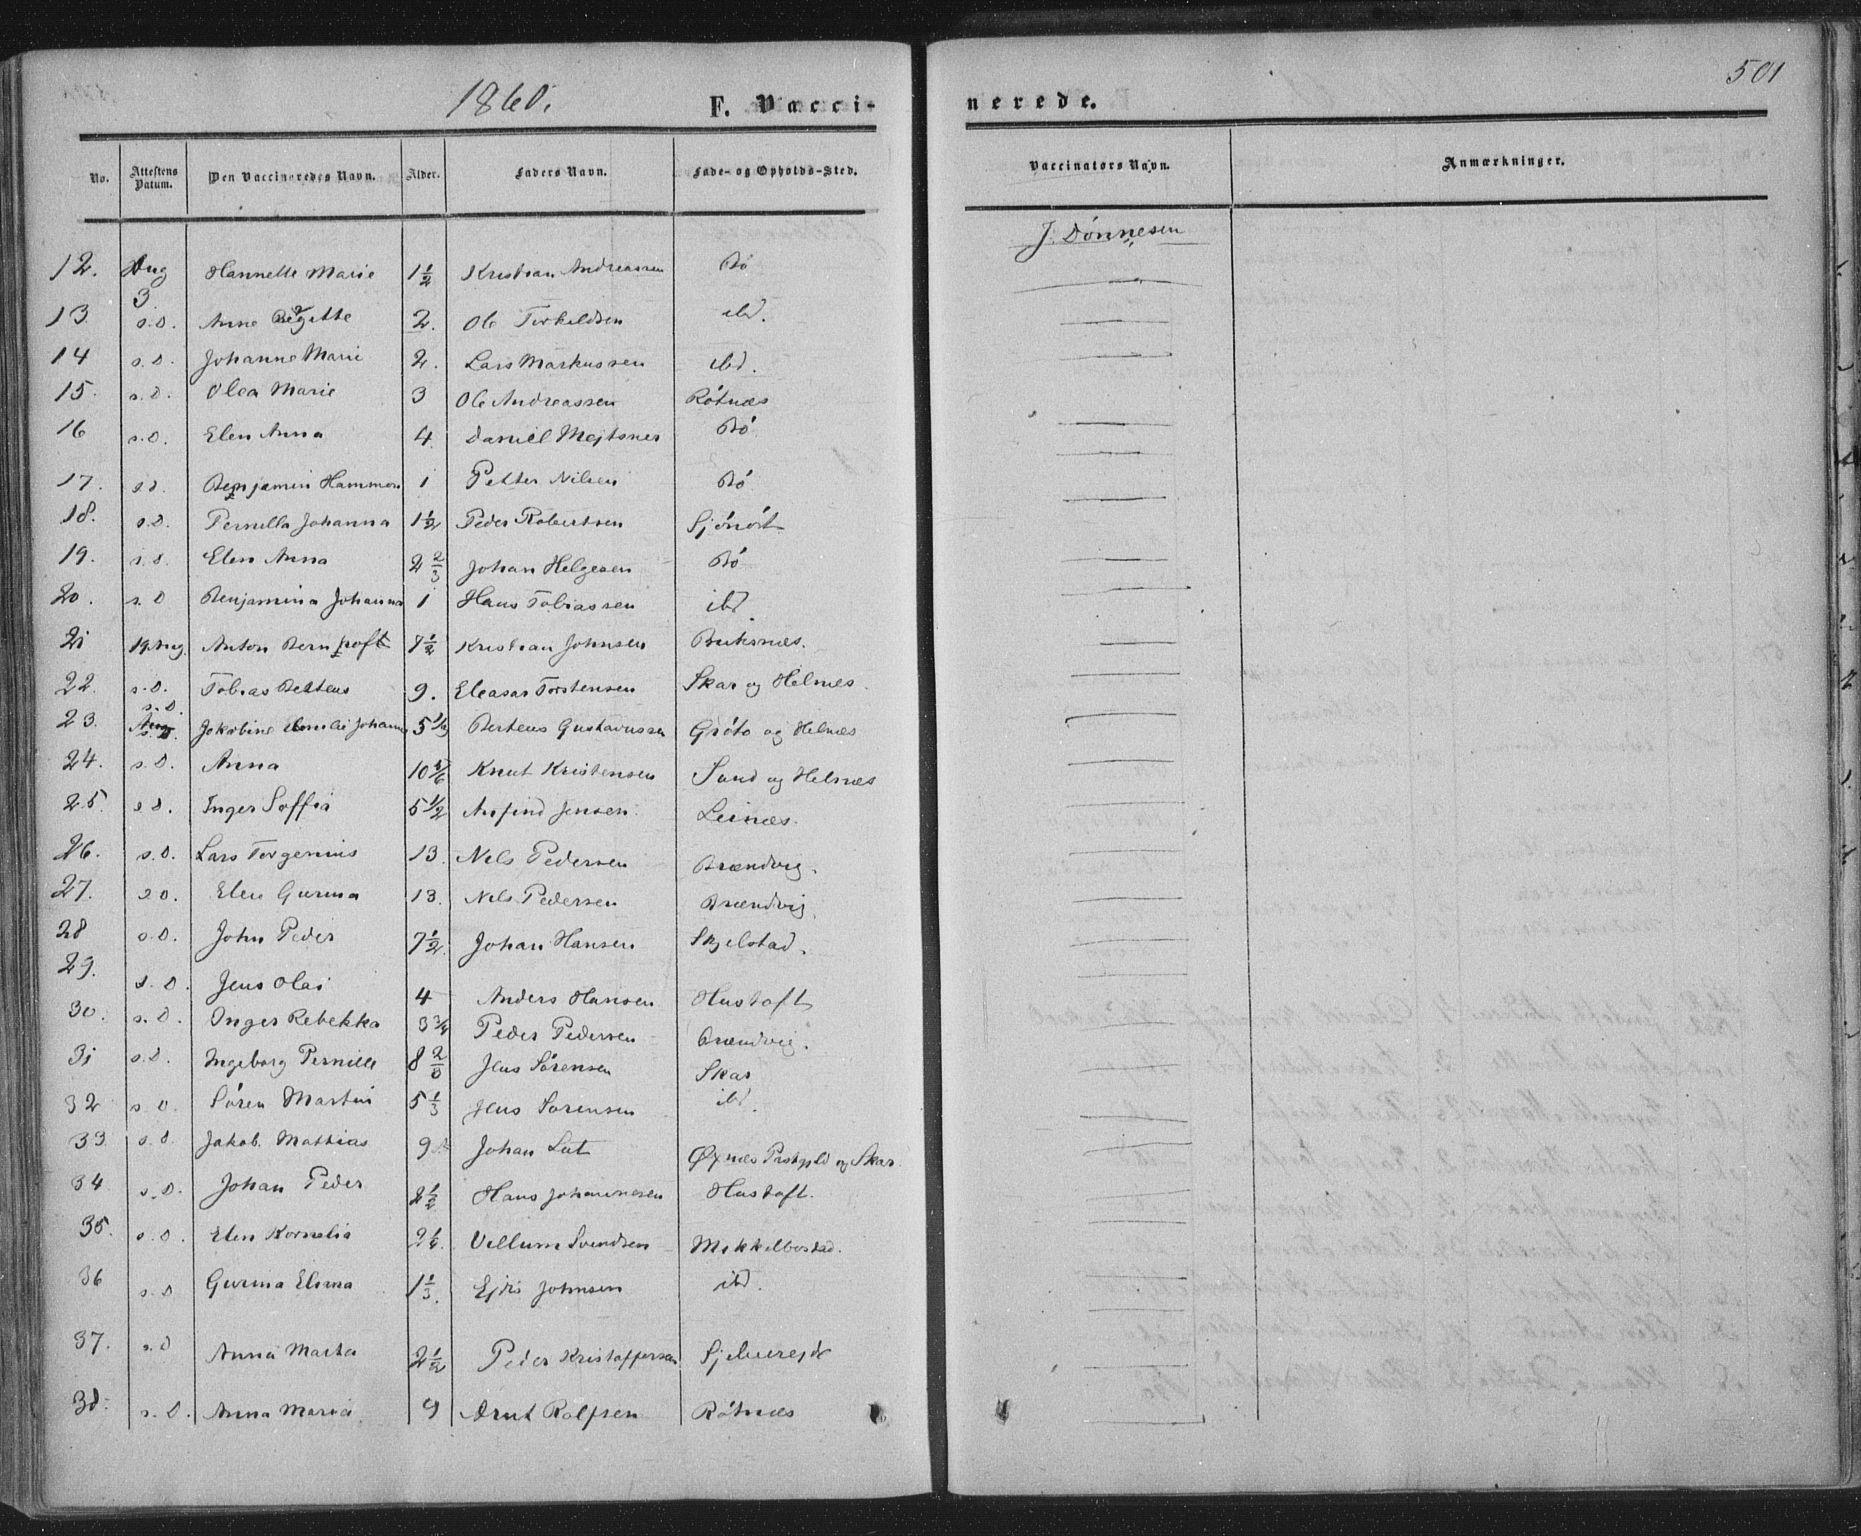 1860.
F. Vacci-
nerede.
501
No. Attestens Datum. Den Vaccineredes Navn. Alder. Faders Navn. Føde- og Opholds-Sted. Vaccinators Navn. Anmærkninger.
J. Dønnesen
12. Aug 3 Hannette Marie 1 1/2 Kristian Andreassen Bø
13 s.D. Anne Begitte 2. Ole Terkildsen ibd.
14 s.D. Johanne Marie 2. Lars Markussen ibd.
15. s.D. Olea Marie 3 Ole Andreassen Røtnæs
16 s.D. Elen Anna 4. Daniel Bø
17. s.d. Benjamin Hammon 1 Petter Nilsen Bø
18. s.D. Pernella Johanna 1 1/2 Peder Robertsen
19. s.d. Elen Anna 2 2/3 Johan Helgesen Bø
20. s.D Benjamina Johanna 1 Hans Tobiassen ibd
21 19 Aug. Anton Bern 7 1/2 Kristian Johnsen Buksnæs.
22. s.D. Tobias Berteus 9. Eleasar Torstensen Skar og Helnæs.
23. s.D. Jakobine Emelie Johanna 5 1/3 Berteus Gustavussen Grøto og Helnæs
24. s.D. Anna 10 5/6 Knut Kristensen Sand og Helnæs
25. s.d. Inger Soffia 5 1/2 Arfind Jensen Leinæs.
26. s.D. Lars Torgenius 13. Nels Pedersen Brændvig.
27. s.D. Elen Gurina 13. Nels Pedersen Brændvig.
28 s.D. John Peder 7 1/2 Johan Hansen Skjelstad.
29. s.D. Jens Olai 4 Anders Hansen Hustoft
30. s.D. Inger Rebekka 3 3/4 Peder Pedersen Brændvig.
31 s.D. Ingeborg Pernille 8 Jens Sørensen Skar
32 s.D. Søren Martin 5 1/3 Jens Sørensen ibd.
33. s.d. Jakob Mathias 9 Johan Øxnæs Præstgjeld og Skar.
34 s.D. Johan Peder 2 1/2 Hans Johannesen Hustoft.
35. s.D. Elen Kornelia 2 1/4 Villum Svendsen Mikkelbostad.
36 s.D Gurina Elena 1 1/3. Johnsen ibd.
37. s.D Anna Marta 2 1/2 Peder Kristoffersen
38. s.D. Anna Maria 9 Arnt Rolfsen Røtnæs